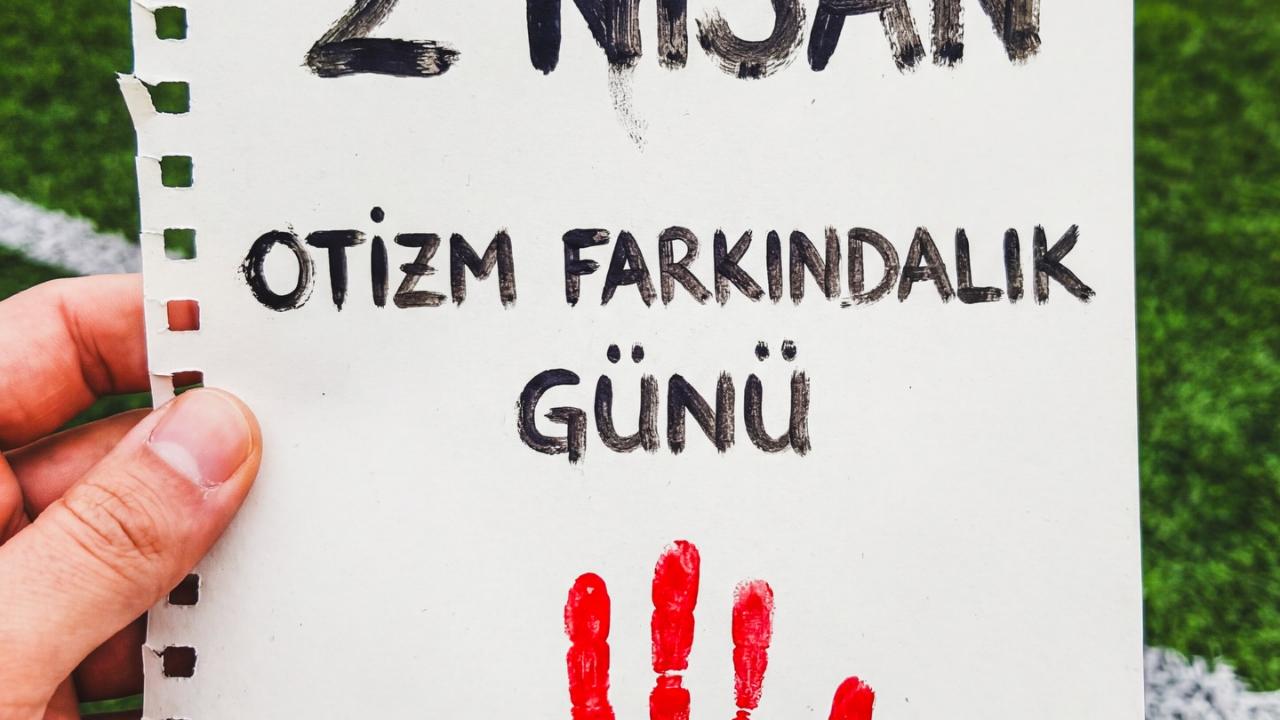 2 NİSAN
OTİZM FARKINDALIK
GÜNÜ